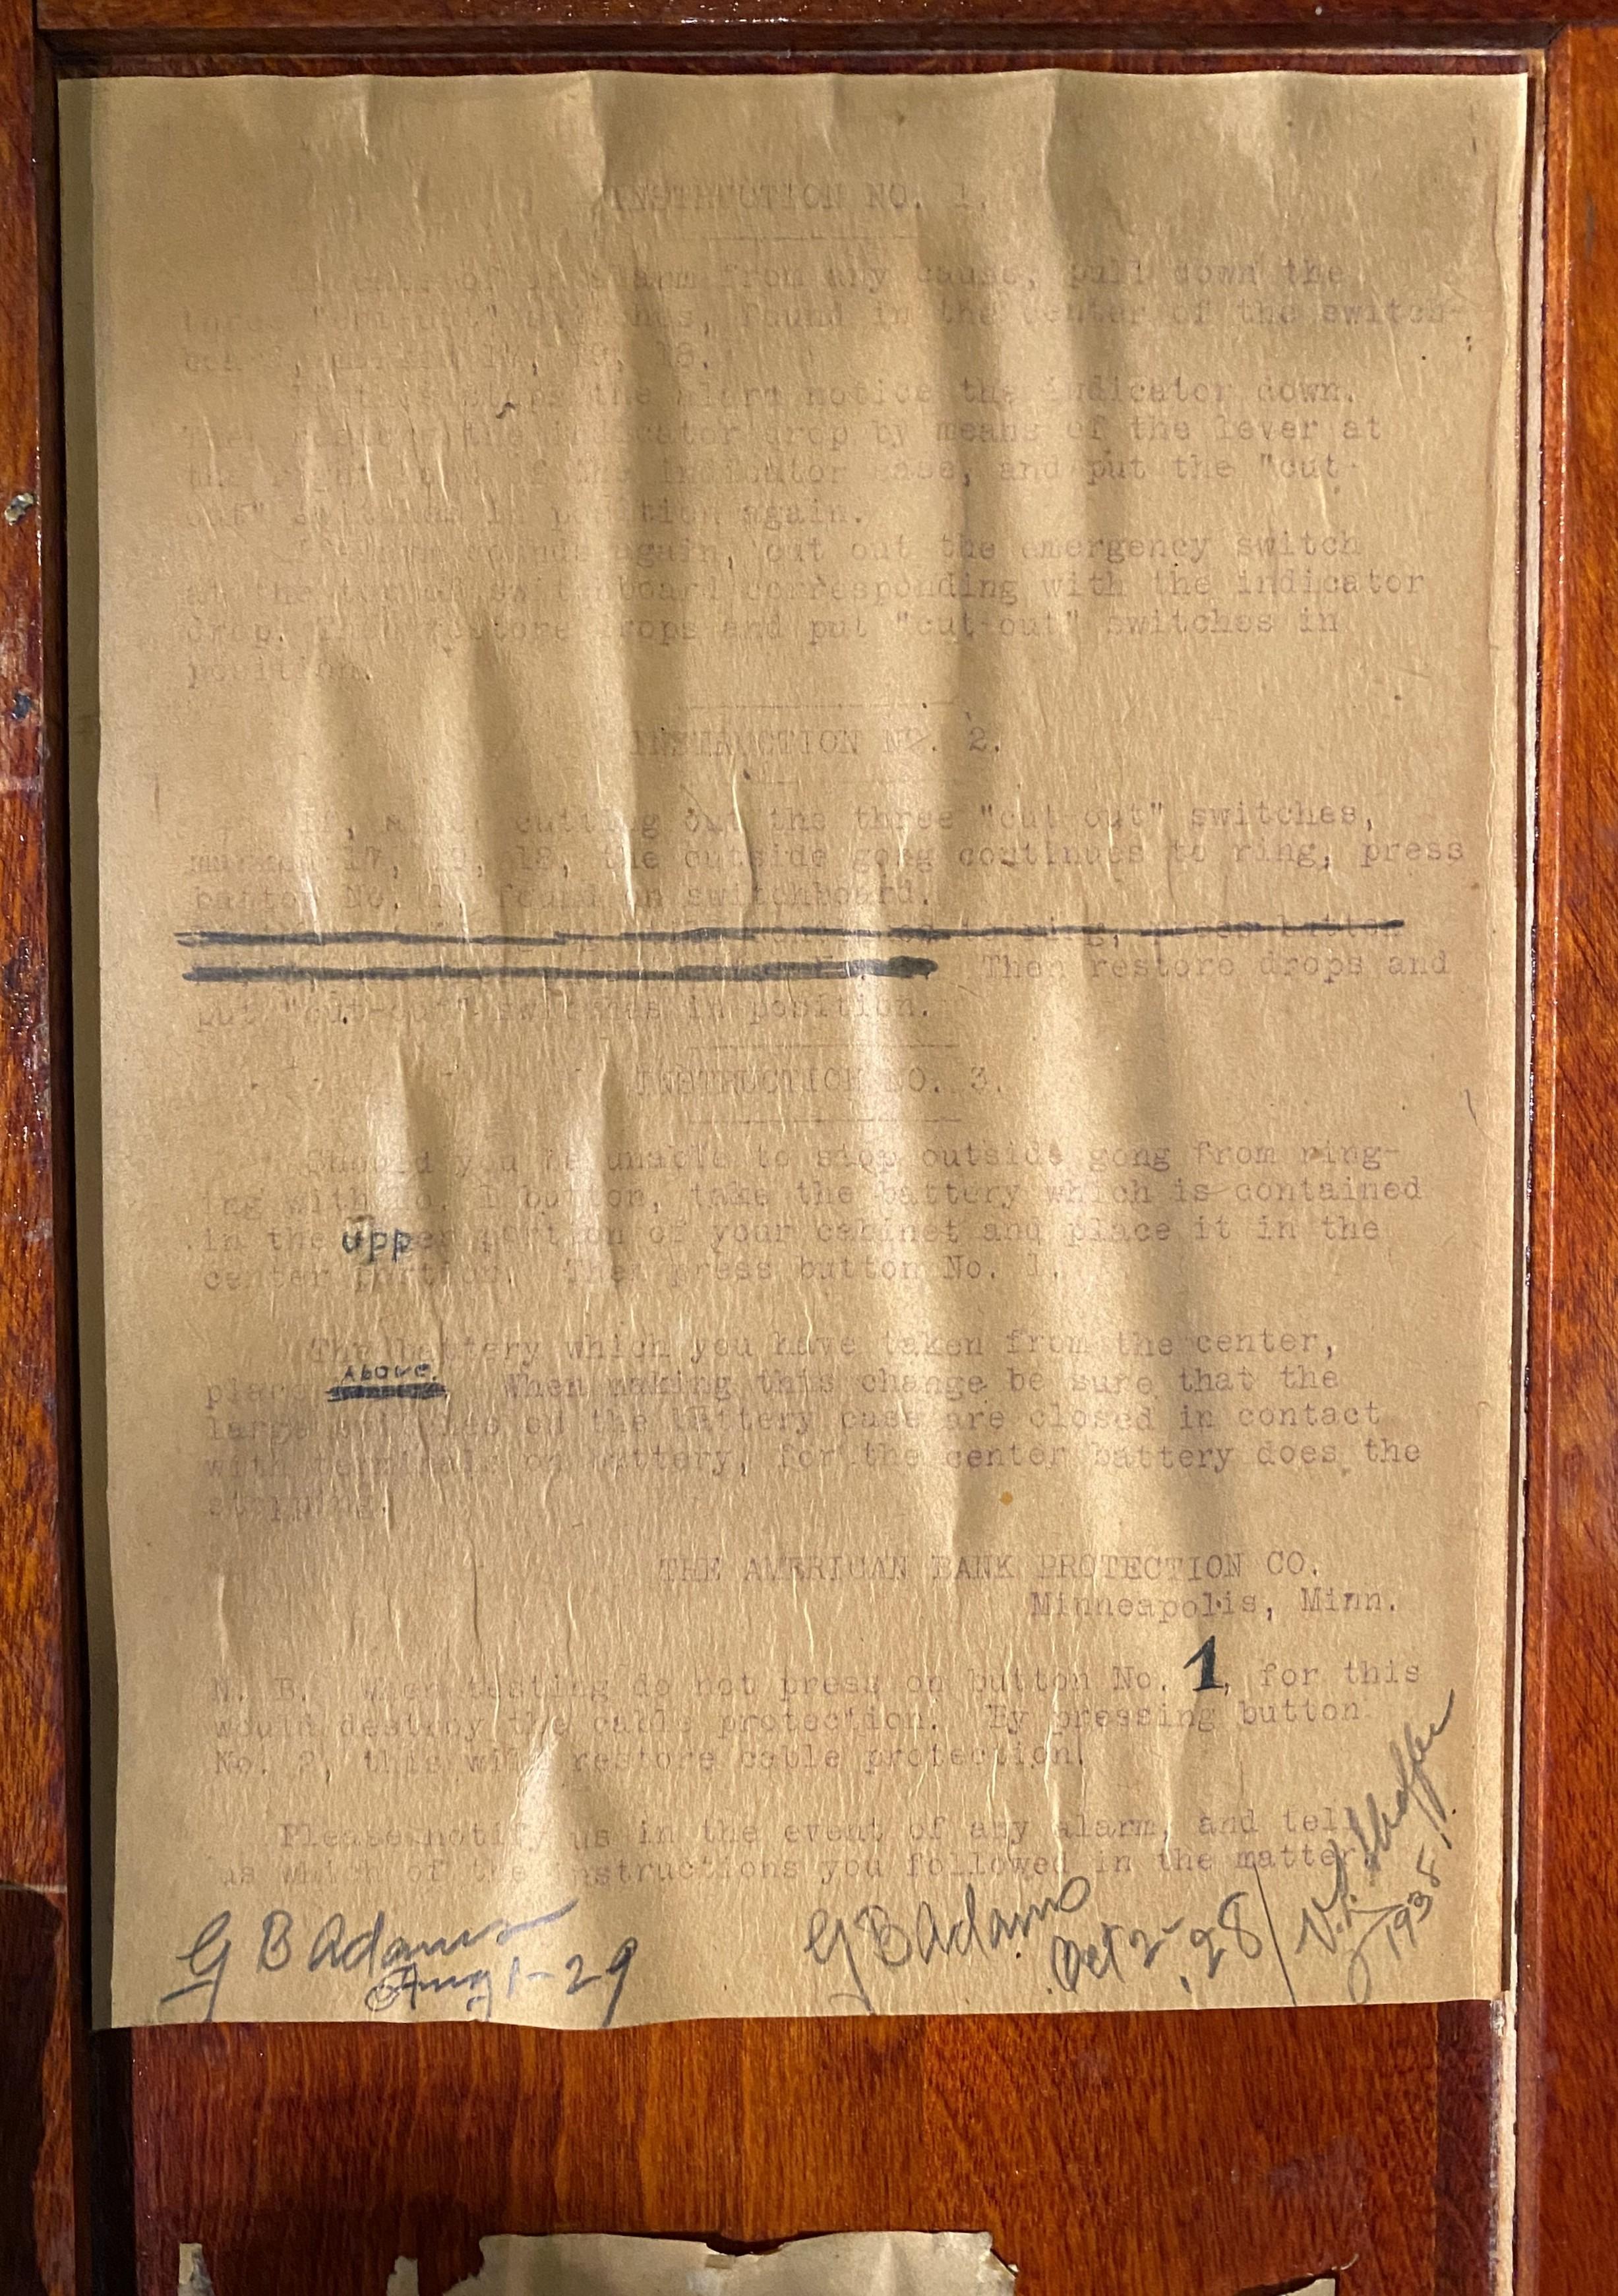 INSTRUCTION NO. 1.
of an alarm from any cause, pull down the
three "cut-out" switches, found in the center of the switch-
17, 19, 18.
If this stops the alarm notice the indicator down.
Then restore the indicator drop by means of the lever at
the right hand of the indicator case, and put the "cut-
out" switches in position again.
If alarm sounds again, cut out the emergency switch
at the top of switchboard corresponding with the indicator
drop. Then restore drops and put "cut-out" switches in
position.
INSTRUCTION NO. 2.
If, after cutting out the three "cut out" switches,
marked 17, 19, 18, the outside gong continues to ring, press
button No. 1, found on switchboard.
to ring, press button
Then restore drops and
put "cut-out" switches in position.
INSTRUCTION NO. 3.
Should you be unable to stop outside gong from ring-
ing with No. 1 button, take the battery which is contained
in the upper portion of your cabinet and place it in the
center portion. Then press button No. 1.
The battery which you have taken from the center,
Above.
place When making this change be sure that the
large switches on the battery case are closed in contact
with terminals on battery, for the center battery does the
stopping.
THE AMERICAN BANK PROTECTION CO.
Minneapolis, Minn.
N. B. When testing do not press on button No. 1, for this
would destroy the cable protection. By pressing button
No. 2, this will restore cable protection.
Please notify us in the event of any alarm, and tell
us which of the instructions you followed in the matter.
G B Adams
Aug 1-29
G B Adams
Oct 2-28
Shaffer
1935